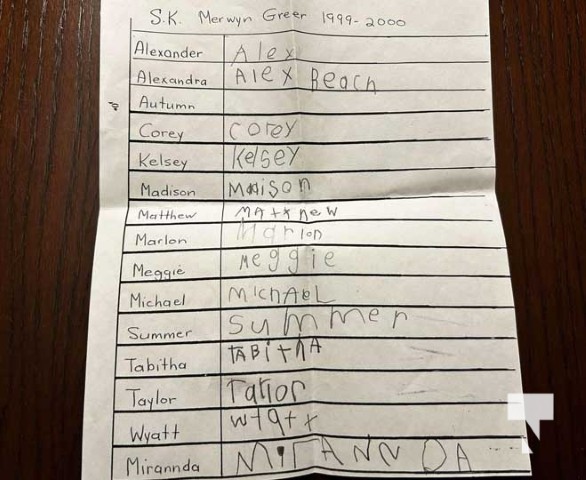 S.K. Merwyn Greer 1999-2000
Alexander Alex
Alexandra Alex Beach
Autumn
Corey corey
Kelsey Kelsey
Madison Maison
Matthew MAtxnew
Marlon Marlon
Meggie Meggie
Michael MichAEL
Summer Summer
Tabitha TABitHA
Taylor
Wyatt
Mirannda MirANNDA